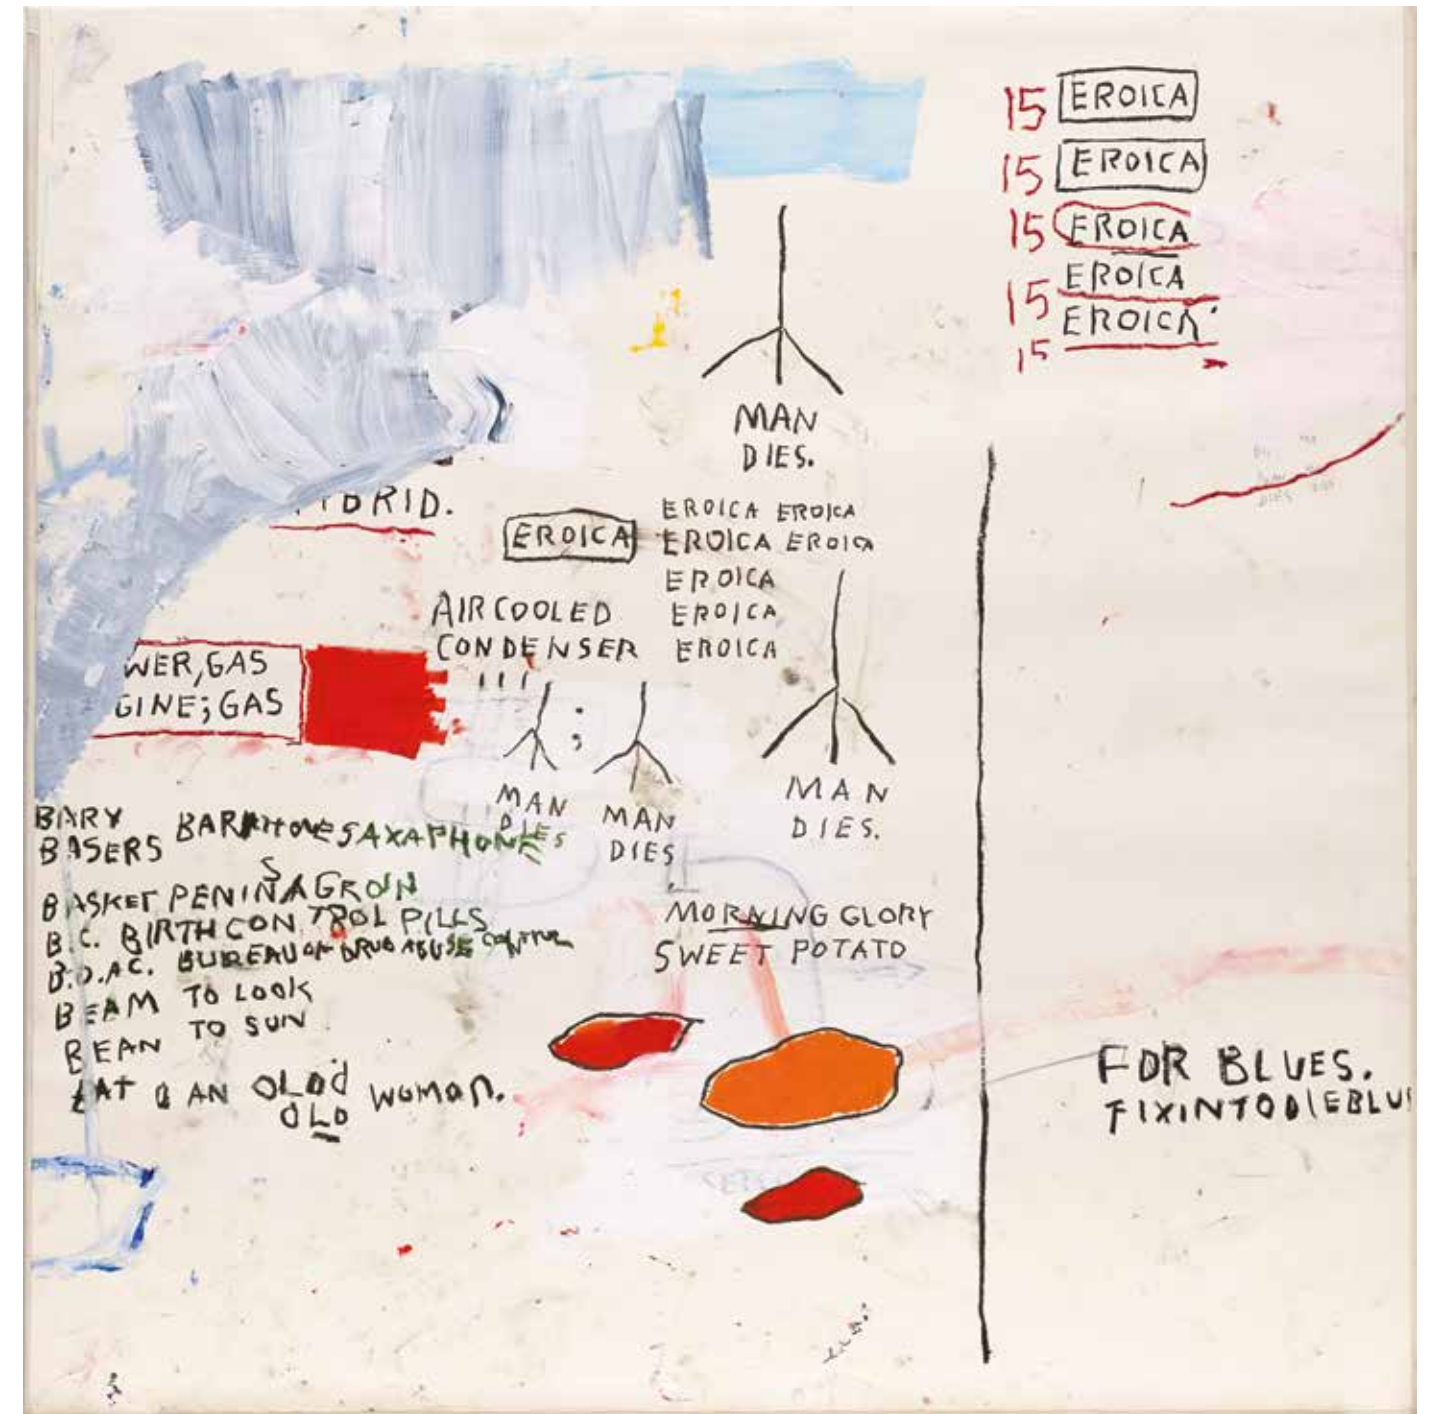 15 EROICA
15 EROICA
15 EROICA
15 EROICA
EROICA
15
MAN
DIES.
BRID.
EROICA
EROICA EROICA
EROICA EROICA
EROICA
EROICA
EROICA
AIR COOLED
CONDENSER
WER, GAS
GINE; GAS
;
MAN
DIES
MAN
DIES
MAN
DIES.
BARY
BASERS BARITONE SAXAPHONES
S
BASKET PENIN A GROIN
B.C. BIRTH CONTROL PILLS
B.D.AC. BUREAU OF DRUG ABUSE CONTROL
BEAM TO LOOK
BEAN TO SUN
EAT AN OLD WOMAN.
OLD
MORNING GLORY
SWEET POTATO
FOR BLUES.
FIXINTODIEBLU